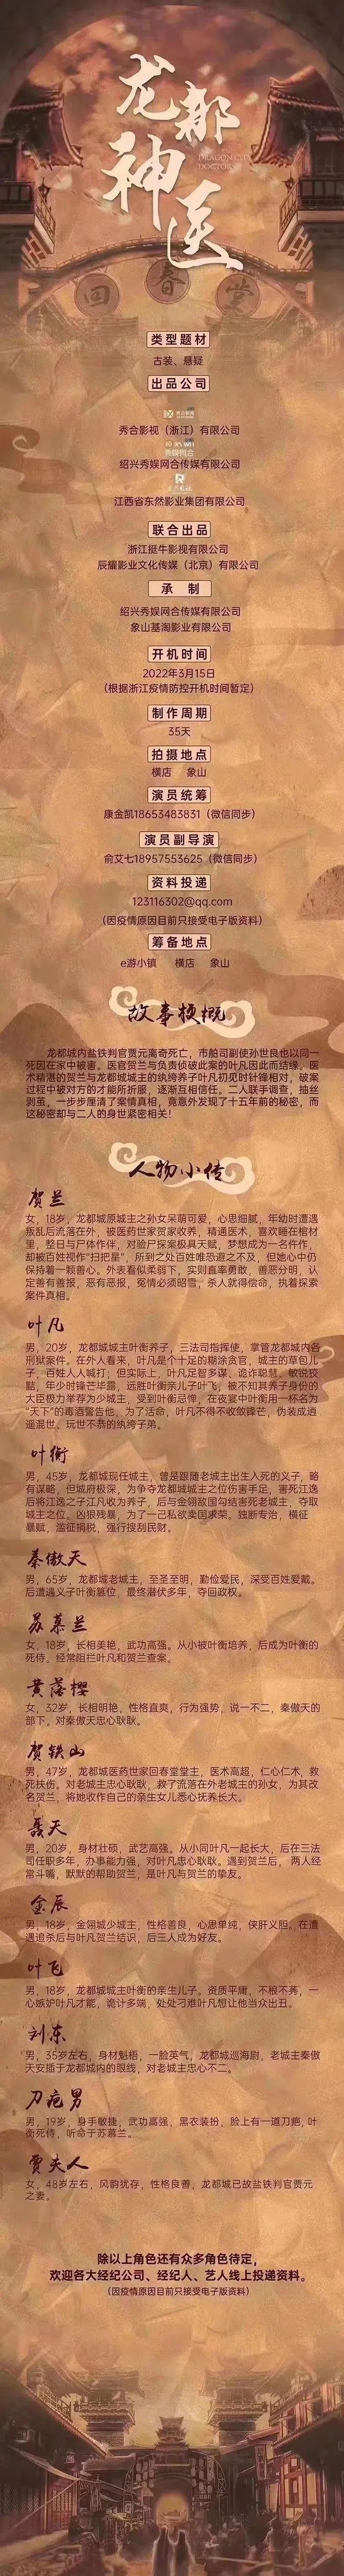 龙都
神医
DRAGON CITY
DOCTOR
回春堂
类型题材
古装、悬疑
出品公司
秀合影视（浙江）有限公司
绍兴秀娱网合传媒有限公司
江西省东然影业集团有限公司
联合出品
浙江挺牛影视有限公司
辰耀影业文化传媒（北京）有限公司
承 制
绍兴秀娱网合传媒有限公司
象山基淘影业有限公司
开机时间
2022年3月15日
（根据浙江疫情防控开机时间暂定）
制作周期
35天
拍摄地点
横店 象山
演员统筹
康金凯18653483831（微信同步）
演员副导演
俞艾七18957553625（微信同步）
资料投递
123116302@qq.com
（因疫情原因目前只接受电子版资料）
筹备地点
e游小镇 横店 象山
故事梗概
龙都城内盐铁判官贾元离奇死亡，市舶司副使孙世良也以同一
死因在家中被害。医官贺兰与负责侦破此案的叶凡因此而结缘。医
术精湛的贺兰与龙都城城主的纨绔养子叶凡初见时针锋相对，破案
过程中被对方的才能所折服，逐渐互相信任。二人联手调查，抽丝
剥茧，一步步厘清了案情真相，竟意外发现了十五年前的秘密，而
这秘密却与二人的身世紧密相关！
人物小传
贺兰
女，18岁，龙都城原城主之孙女呆萌可爱，心思细腻，年幼时遭遇
叛乱后流落在外，被医药世家贺家收养，精通医术，喜欢睡在棺材
里，整日与尸体作伴，对验尸探案极具天赋，梦想成为一名仵作，
却被百姓视作“扫把星”，所到之处百姓唯恐避之不及，但她心中仍
保持着一颗善心。外表看似柔弱下，实则直率勇敢，善恶分明，认
定善有善报，恶有恶报，冤情必须昭雪，杀人就得偿命，执着探索
案件真相。
叶凡
男，20岁，龙都城城主叶衡养子，三法司指挥使，掌管龙都城内各
刑狱案件。在外人看来，叶凡是个十足的糊涂贪官，城主的草包儿
子，百姓人人喊打；但实际上，叶凡足智多谋、诡诈聪慧、敏锐狡
黠，年少时锋芒毕露，远胜叶衡亲儿子叶飞，被不知其养子身份的
大臣极力举荐为少城主，受到叶衡忌惮，在夜宴中叶衡用一杯名为
“天下”的毒酒警告他，为了活命，叶凡不得不收敛锋芒，伪装成逍
遥混世、玩世不恭的纨绔子弟。
叶衡
男，45岁，龙都城现任城主，曾是跟随老城主出生入死的义子，略
有谋略，但城府极深，为争夺龙都城城主之位伤害手足，害死江逸
后将江逸之子江凡收为养子，后与金翎敌国勾结害死老城主，夺取
城主之位。凶狠残暴，为了一己私欲卖国求荣。独断专治，横征
暴赋，滥征捐税，强行搜刮民财。
秦傲天
男，65岁，龙都城老城主，至圣至明，勤俭爱民，深受百姓爱戴。
后遭遇义子叶衡篡位，最终潜伏多年，夺回政权。
苏慕兰
女，18岁，长相美艳，武功高强。从小被叶衡培养，后成为叶衡的
死侍。经常阻拦叶凡和贺兰查案。
黄落樱
女，32岁，长相明艳，性格直爽，行为强势，说一不二，秦傲天的
部下，对秦傲天忠心耿耿。
贺铁山
男，47岁，龙都城医药世家回春堂堂主，医术高超，仁心仁术，救
死扶伤。对老城主忠心耿耿，救了流落在外老城主的孙女，为其改
名贺兰，将她收作自己的亲生女儿悉心抚养长大。
聂天
男，20岁，身材壮硕，武艺高强。从小同叶凡一起长大，后在三法
司任职多年，办事能力强，对叶凡忠心耿耿。遇到贺兰后，两人经
常斗嘴，默默的帮助贺兰，是叶凡与贺兰的挚友。
金辰
男，18岁，金翎城少城主，性格善良，心思单纯，侠肝义胆。在遭
遇追杀后与叶凡贺兰结识，后三人成为好友。
叶飞
男，18岁，龙都城城主叶衡的亲生儿子。资质平庸，不稂不莠，一
心嫉妒叶凡才能，诡计多端，处处刁难叶凡想让他当众出丑。
刘东
男，35岁左右，身材魁梧，一脸英气，龙都城巡海尉，老城主秦傲
天安插于龙都城内的眼线，对老城主忠心不二。
刀疤男
男，19岁，身手敏捷，武功高强，黑衣装扮，脸上有一道刀疤，叶
衡死侍，听命于苏慕兰。
贾夫人
女，48岁左右，风韵犹存，性格良善，龙都城已故盐铁判官贾元
之妻。
除以上角色还有众多角色待定，
欢迎各大经纪公司、经纪人、艺人线上投递资料。
（因疫情原因目前只接受电子版资料）